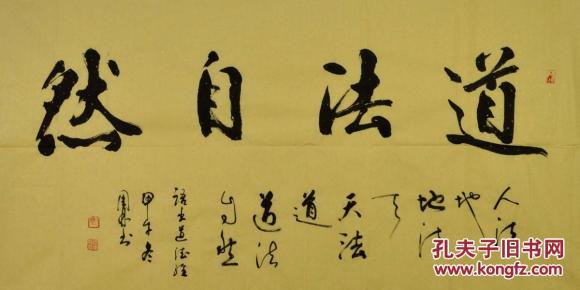 道法自然
人法
地
地法
天
天法
道
道法
自然
语出道德经
甲午冬
书
孔夫子旧书网
www.kongfz.com